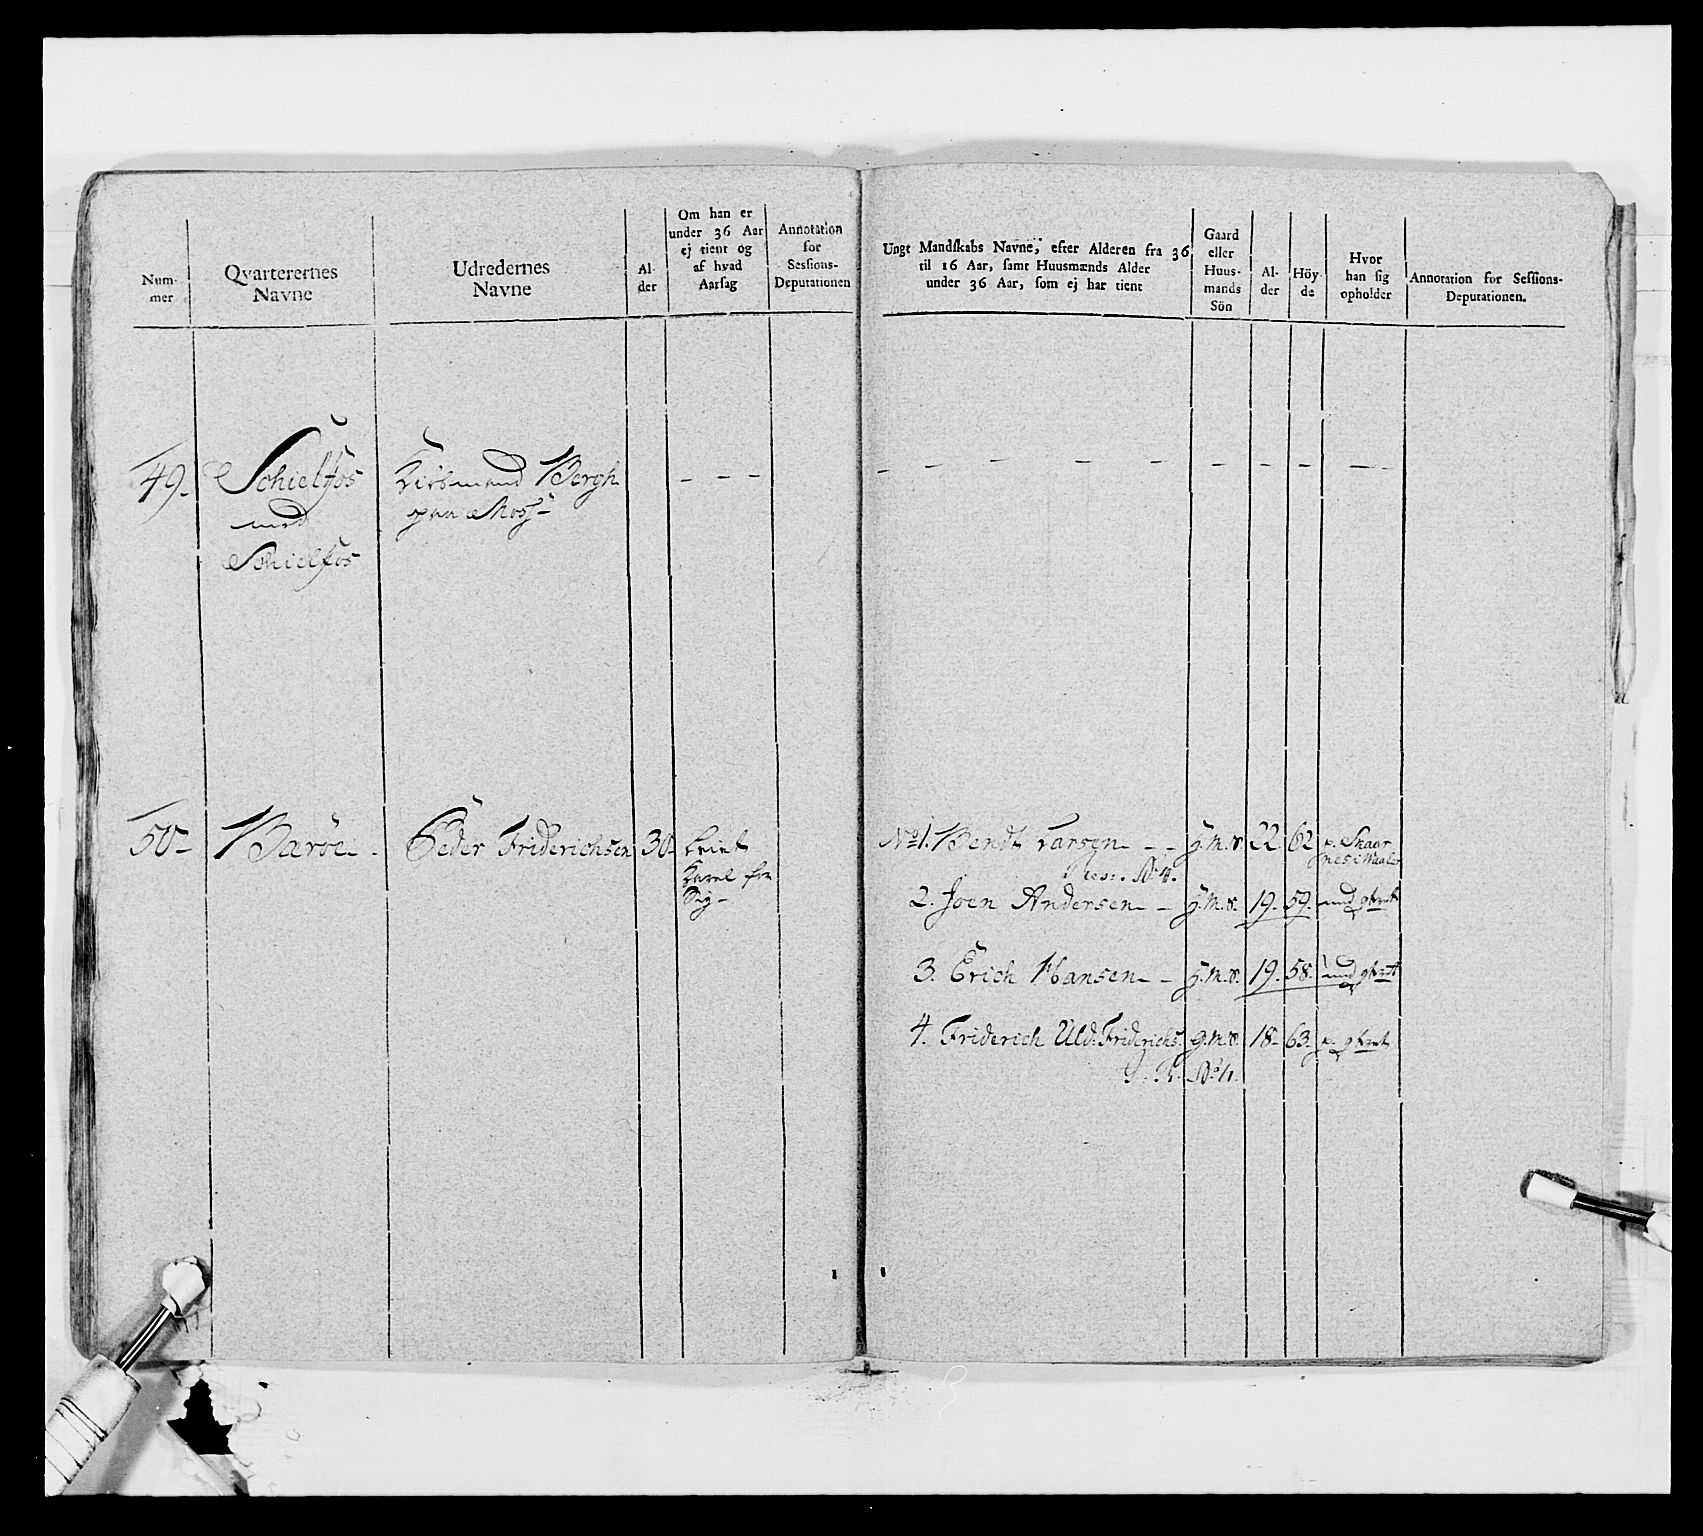 Num-
mer
Qvarterernes
Navne
Udredernes
Navne
Al-
der
Om han er
under 36 Aar
ej tient og
af hvad
Aarsag
Annotation
for
Sessions-
Deputationen
Ungt Mandskabs Navne, efter Alderen fra 36
til 16 Aar, samt Huusmænds Alder
under 36 Aar, som ej har tient
Gaard
eller
Huus-
mands
Sön
Al-
der
Höy-
de
Hvor
han sig
opholder
Annotation for Sessions-
Deputationen.
49. Schielfos Kiøbmand Bergh - - -
med paa Moss
Schielfos
50 Barøe Peder Friderichsen 30
No 1. Bendt Larsen - - H.M.S. 22 62
2. Joen Andersen - H.M.S. 19. 59.
3. Erich Hansen - H.M.S. 19. 58.
4. Friderich Uld. Friderichs. G.M.S. 18 63.